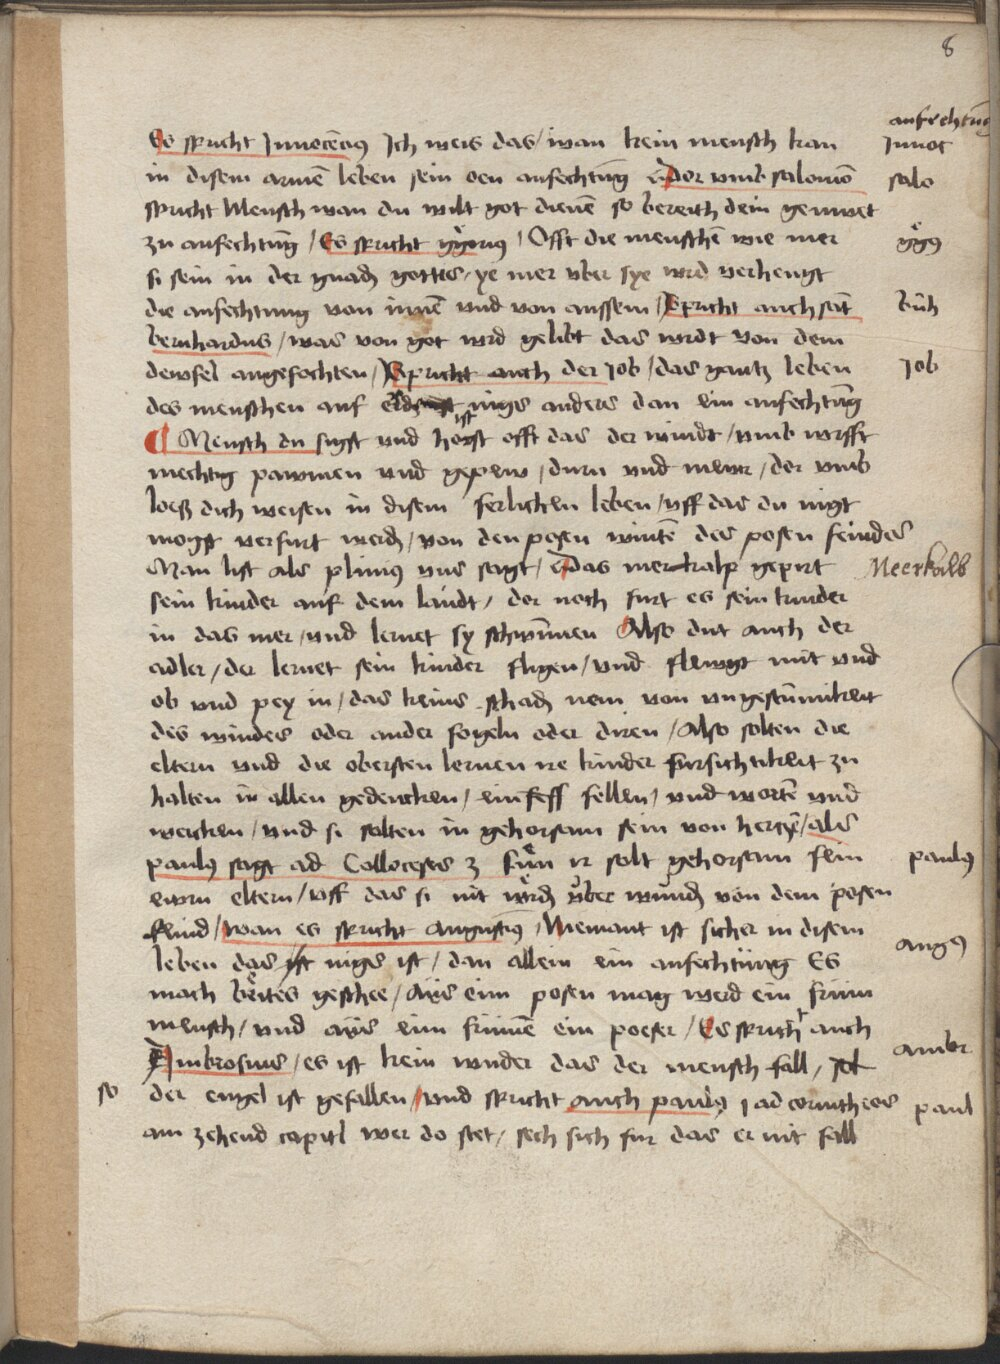 8
anfechtūg
Es spricht Innocēcius Ich weis das / wan kein mensch kan
Innoc
in disem armē leben sein oen anfechtūng Dor vmb salomō
salo
spricht Mensch wan du wilt got dienē so bereith dein gemuet
zu anfechtūg / Es spricht ggorius / Offt die menschē wie mer
ggꝰ
si sein in der gnadē gottes / ye mer vber sye wrd verhengt
die anfechtung von innē vnd von aussem / Spricht auch sāt
bernhardus / was von got wrd gelibt das wirdt von dem
dewfel angefochten / Spricht auch der Job / das gantz leben
Job
des menschen auf erden ist nigs anders dan ein anfechtūg
¶ Mensch du sigst vnd horst offt das der windt / vmb wrfft
mechtig pawmen vnd gepew / durn vnd mewr / der vmb
loeß dich weisen in disem ferlichen leben / vff das du nigt
mogst verfurt werdē / von den posen wintē des posen feindes
Man list als pliniꝰ vns sagt / Das merkalp gepirt
Meerkalb
sein kinder auf dem landt / der noch furt es sein kinder
in das mer / vnd lernet sy schwimmen Also dut auch der
adler / der lernet sein kinder fligen / vnd flewgt mit vnd
ob vnd pey in / das keins schadē nem von vngestūmikeit
des windes oder ander fogeln oder diren / Also solten die
eltern vnd die obersten lernen ire kinder fursichtikeit zu
halten in allen gedencken / vnd wortē vnd
wercken / vnd si solten in gehorsam sein von hertzē / als
paulꝰ sagt ad Collocenses 3 ir solt gehorsam sein
paulꝰ
ewrn eltern / vff das si nit wrdē vber wundē von dem posen
feind / wan es spricht Augustīꝰ / Niemant ist sicher in disem
augꝰ
leben das nigs ist / dan allein ein anfechtung Es
mach beites geschee / Aus eim posen mag werd ein frum
mensch / vnd aus eim frumē ein poeser / Es spricht auch
Ambrosius / es ist kein wnder das der mensch fall /
ambr
so der engel ist gefallen / vnd spricht auch paulꝰ 1 ad corintheos
paul
am zehend capitl wer do stet / sech sich fur das er nit fall